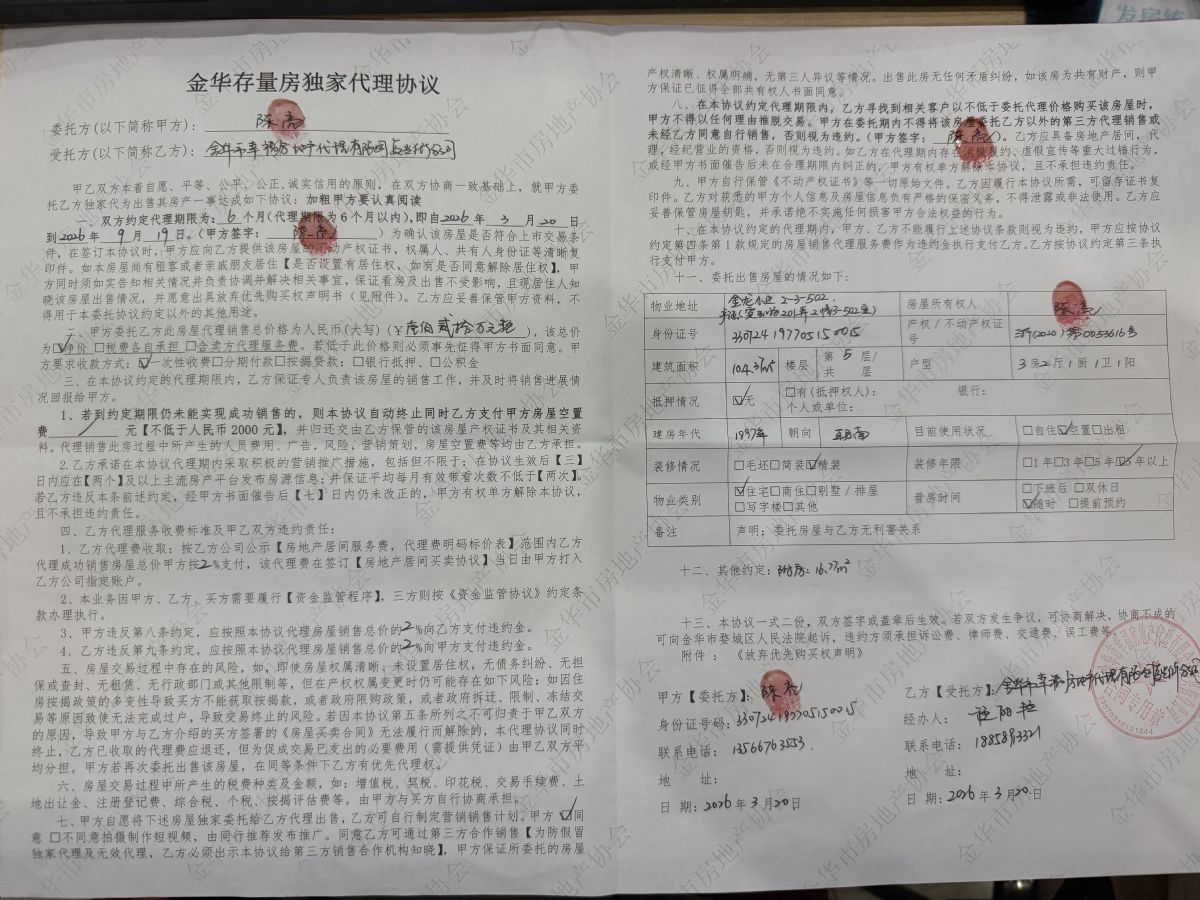 金华存量房独家代理协议
委托方(以下简称甲方)： 陈亮
受托方(以下简称乙方)： 金华市幸福房地产代理有限公司
甲乙双方本着自愿、平等、公平、公正、诚实信用的原则，在双方协商一致基础上，就甲方委
托乙方独家代为出售其房产一事达成如下协议：加粗甲方要认真阅读
一、双方约定代理期限为：6 个月(代理期限为6个月以内)，即自2026 年 3 月 20 日
到2026年 9 月 19 日。（甲方签字： 陈亮 ）为确认该房屋是否符合上市交易条
件，在签订本协议时，甲方应向乙方提供该房屋的不动产权证书，权属人、共有人身份证等清晰复
印件。如本房屋尚有租客或者亲戚朋友居住【是否设置有居住权，如有是否同意解除居住权】，甲
方同时须如实告知相关情况并负责协调并解决相关事宜，保证看房及出售不受影响，且现居住人知
晓该房屋出售情况，并愿意出具放弃优先购买权声明书（见附件）。乙方应妥善保管甲方资料，不
得用于本委托协议约定以外的其他用途。
二、甲方委托乙方此房屋代理销售总价格为人民币(大写)（￥壹佰贰拾万元整），该总价
为☑净价 □税费各自承担 □含卖方代理服务费。若低于此价格则必须事先征得甲方书面同意。甲
方要求收款方式：☑一次性收费□分期付款□按揭贷款：□银行抵押、□公积金
三、在本协议约定的代理期限内，乙方保证专人负责该房屋的销售工作，并及时将销售进展情
况回报给甲方。
1、若到约定期限仍未能实现成功销售的，则本协议自动终止同时乙方支付甲方房屋空置
费 / 元【不低于人民币 2000 元】，并归还交由乙方保管的该房屋产权证书及其相关资
料。代理销售此房过程中所产生的人员费用、广告，风险，营销策划，房屋空置费等均由乙方承担。
2.乙方承诺在本协议代理期内采取积极的营销推广措施，包括但不限于：在协议生效后【三】
日内应在【两个】及以上主流房产平台发布房源信息；并保证平均每月有效带看次数不低于【两次】。
若乙方违反本条前述约定，经甲方书面催告后【七】日内仍未改正的，甲方有权单方解除本协议，
且不承担违约责任。
四、乙方代理服务收费标准及甲乙双方违约责任：
1、乙方代理费收取：按乙方公司公示【房地产居间服务费，代理费明码标价表】范围内乙方
代理成功销售房屋总价甲方按2%支付，该代理费在签订【房地产居间买卖协议】当日由甲方打入
乙方公司指定账户。
2、本业务因甲方、乙方、买方需要履行【资金监管程序】，三方则按《资金监管协议》约定条
款办理执行。
3、甲方违反第八条约定，应按照本协议代理房屋销售总价的2%向乙方支付违约金。
4、乙方违反第九条约定，应按照本协议代理房屋销售总价的2%向甲方支付违约金。
五、房屋交易过程中存在的风险，如，即使房屋权属清晰、未设置居住权，无债务纠纷、无担
保或查封、无租赁、无行政部门或其他限制等，但在产权权属变更时仍可能存在如下风险：如因住
房按揭政策的多变性导致买方不能获取按揭款，或者政府限购政策，或者政府拆迁、限制、冻结交
易等原因致使无法完成过户，导致交易终止的风险。若因本协议第五条所列之不可归责于甲乙双方
的原因，导致甲方与乙方介绍的买方签署的《房屋买卖合同》无法履行而解除的，本代理协议同时
终止，乙方已收取的代理费应退还，但为促成交易已支出的必要费用（需提供凭证）由甲乙双方平
均分担。甲方若再次委托出售该房屋，在同等条件下乙方有优先代理权。
六、房屋交易过程中所产生的税费种类及金额，如：增值税、契税、印花税、交易手续费、土
地出让金、注册登记费、综合税、个税、按揭评估费等。由甲方与买方自行协商承担。
七、甲方自愿将下述房屋独家委托给乙方代理出售，乙方可自行制定营销销售计划。甲方 ☑同
意 □不同意拍摄制作短视频，由同行推荐发布推广。同意乙方可通过第三方合作销售【为防假冒
独家代理及无效代理，乙方必须出示本协议给第三方销售合作机构知晓】，甲方保证所委托的房屋
产权清晰、权属明确，无第三人异议等情况。出售此房无任何矛盾纠纷，如该房为共有财产，则甲
方保证已征得全部共有权人书面同意。
八、在本协议约定代理期限内，乙方寻找到相关客户以不低于委托代理价格购买该房屋时，
甲方不得以任何理由推脱交易。甲方在委托期内不得将该房屋委托乙方以外的第三方代理销售或
未经乙方同意自行销售，否则视为违约。（甲方签字： 陈亮 ）。乙方应具备房地产居间，代
理，经纪营业的资格，否则视为违约。如乙方在代理期内存在消极履约、虚假宣传等重大过错行为，
或经甲方书面催告后未在合理期限内纠正的，甲方有权单方解除本协议，且不承担违约责任。
九、甲方自行保管《不动产权证书》等一切原始文件。乙方因履行本协议所需，可留存证书复
印件。乙方对获悉的甲方个人信息及房屋信息负有严格的保密义务，不得泄露或非法使用。乙方应
妥善保管房屋钥匙，并承诺绝不实施任何损害甲方合法权益的行为。
十、在本协议约定的代理期内，甲方、乙方不能履行上述协议条款则视为违约，甲方应按协议
约定第四条第 1 款规定的房屋销售代理服务费作为违约金执行支付乙方。乙方按协议约定第三条执
行支付甲方。
十一、委托出售房屋的情况如下：
物业地址 金龙小区 2-3-502. 房屋所有权人 陈亮
身份证号 330724197705150015 产权 / 不动产权证号 浙(2020) 第0053616号
建筑面积 104.37㎡ 楼层 第 5 层/共 层 户型 3 房 2 厅 1 厨 1 卫 1 阳
抵押情况 ☑无 □有（抵押权人）： 银行：
个人或单位：
建房年代 1997年 朝向 朝南 目前使用状况 □自住☑空置□出租
装修情况 □毛坯□简装☑精装 装修年限 □1年□3年□5年☑5年以上
物业类别 ☑住宅□商住□别墅 / 排屋 看房时间 □下班后 □双休日
□写字楼□其他 ☑随时 □提前预约
备注 声明：委托房屋与乙方无利害关系
十二、其他约定：附房: 16.77m²
十三、本协议一式二份，双方签字或盖章后生效。若双方发生争议，可协商解决，协商不成的
可向金华市婺城区人民法院起诉，违约方须承担诉讼费、律师费、交通费、误工费等。
附件 ： 《放弃优先购买权声明》
甲方【委托方】：陈亮
身份证号码：330724197705150015
联系电话：13566763553
地 址：
日 期：2026 年 3 月 20 日
乙方【受托方】：金华市幸福房地产代理有限公司
经办人：
联系电话：
地 址：
日 期：2026 年 3 月 20 日